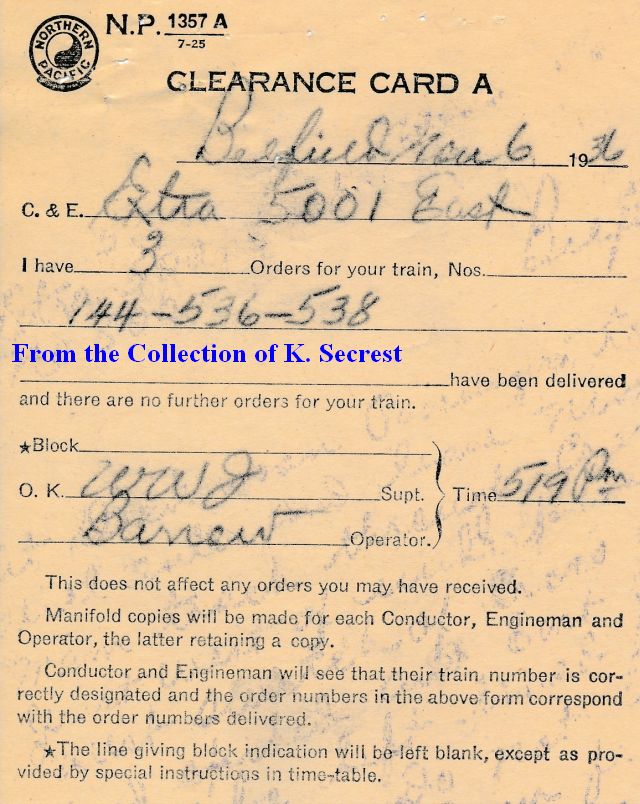 NORTHERN PACIFIC
N.P. 1357 A
7-25
CLEARANCE CARD A
Belfield Nov 6 1936
C. & E. Extra 5001 East
I have 3 Orders for your train, Nos.
144-536-538
From the Collection of K. Secrest
have been delivered
and there are no further orders for your train.
★Block
O. K. WWJ Supt. Time 519 Pm
Barrow Operator.
This does not affect any orders you may have received.
Manifold copies will be made for each Conductor, Engineman and
Operator, the latter retaining a copy.
Conductor and Engineman will see that their train number is cor-
rectly designated and the order numbers in the above form correspond
with the order numbers delivered.
★The line giving block indication will be left blank, except as pro-
vided by special instructions in time-table.